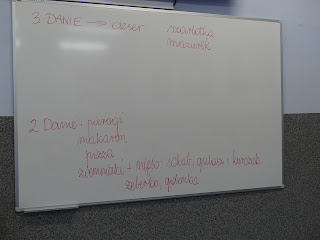 3. DANIE → deser szarlotka
mazurek
2 Danie: pierogi
makaron
pizza
ziemniaki + mięso: schab, gulasz, kurczak
żeberka, golonka